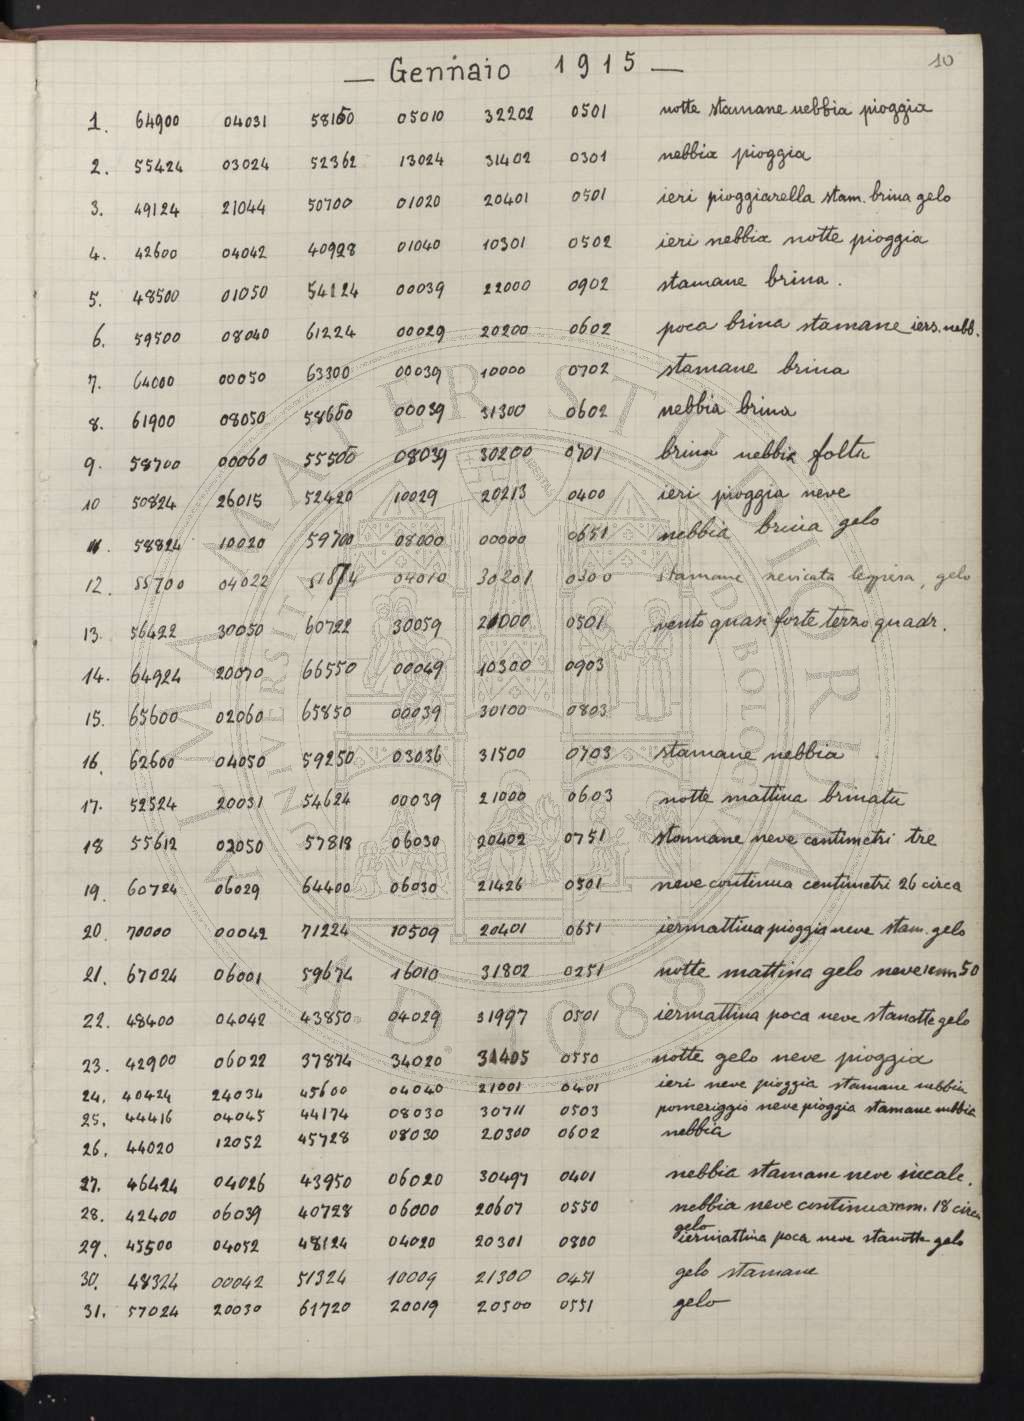 10
— Gennaio 1915 —
1. 64900 04031 58150 05010 32202 0501 notte stamane nebbia pioggia
2. 55424 03024 52362 13024 31402 0301 nebbia pioggia
3. 49124 21044 50700 01020 20401 0501 ieri pioggiarella stam. brina gelo
4. 42600 04042 40928 01040 10301 0502 ieri nebbia notte pioggia
5. 48500 01050 54124 00039 22000 0902 stamane brina.
6. 59500 08040 61224 00029 20200 0602 poca brina stamane iers. nebb.
7. 64000 00050 63300 00039 10000 0702 stamane brina
8. 61900 08050 58650 00039 31300 0602 nebbia brina
9. 58700 00060 55500 08039 30200 0701 brina nebbia folta
10 50824 26015 52420 10029 20213 0400 ieri pioggia neve
11. 58824 10020 59700 08000 00000 0651 nebbia brina gelo
12. 55700 04022 51874 04010 30201 0300 stamane nevicata leggiera, gelo
13. 56422 30050 60722 30059 21000 0501 vento quasi forte terzo quadr.
14. 64924 20070 66550 00049 10300 0903
15. 65600 02060 65850 00039 30100 0803
16. 62600 04050 59250 03036 31500 0703 stamane nebbia
17. 52524 20031 54624 00039 21000 0603 notte mattina brinata
18 55612 02050 57818 06030 20402 0751 stamane neve centimetri tre
19. 60724 06029 64400 06030 21426 0501 neve continua centimetri 26 circa
20. 70000 00042 71224 10509 20401 0651 iermattina pioggia neve stam. gelo
21. 67024 06001 59674 16010 31802 0251 notte mattina gelo neve 50
22. 48400 04042 43850 04029 31997 0501 iermattina poca neve stanotte gelo
23. 42900 06022 37874 34020 31405 0550 notte gelo neve pioggia
24. 40424 24034 45600 04040 21001 0401 ieri neve pioggia stamane nebbia
25. 44416 04045 44174 08030 30711 0503 pomeriggio neve pioggia stamane nebbia
26. 44020 12052 45728 08030 20300 0602 nebbia
27. 46424 04026 43950 06020 30497 0401 nebbia stamane neve
28. 42400 06039 40728 06000 20607 0550 nebbia neve continua mm. 18 circa
gelo
29. 45500 04052 48124 04020 20301 0300 iermattina poca neve stanotte gelo
30. 48324 00042 51324 10009 21300 0451 gelo stamane
31. 57024 20030 61720 20019 20500 0551 gelo
ALMA MATER STUDIORUM
UNIVERSITÀ DI BOLOGNA
A.D. 1088